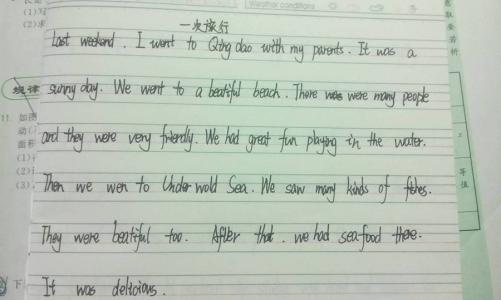 Weather conditions
(1)
(2)求
一次旅行
Last weekend. I went to Qing dao with my parents. It was a
规律
sunny day. We went to a beatiful beach. There was were many people
11. 如图
动
and they were very friendly. We had great fun playing in the water.
面积
(1)
(2)
Then we wen to Under wold Sea. We saw many kinds of fishes.
(3)
They were beatiful too. After that. we had sea food there.
下
It was delicious.